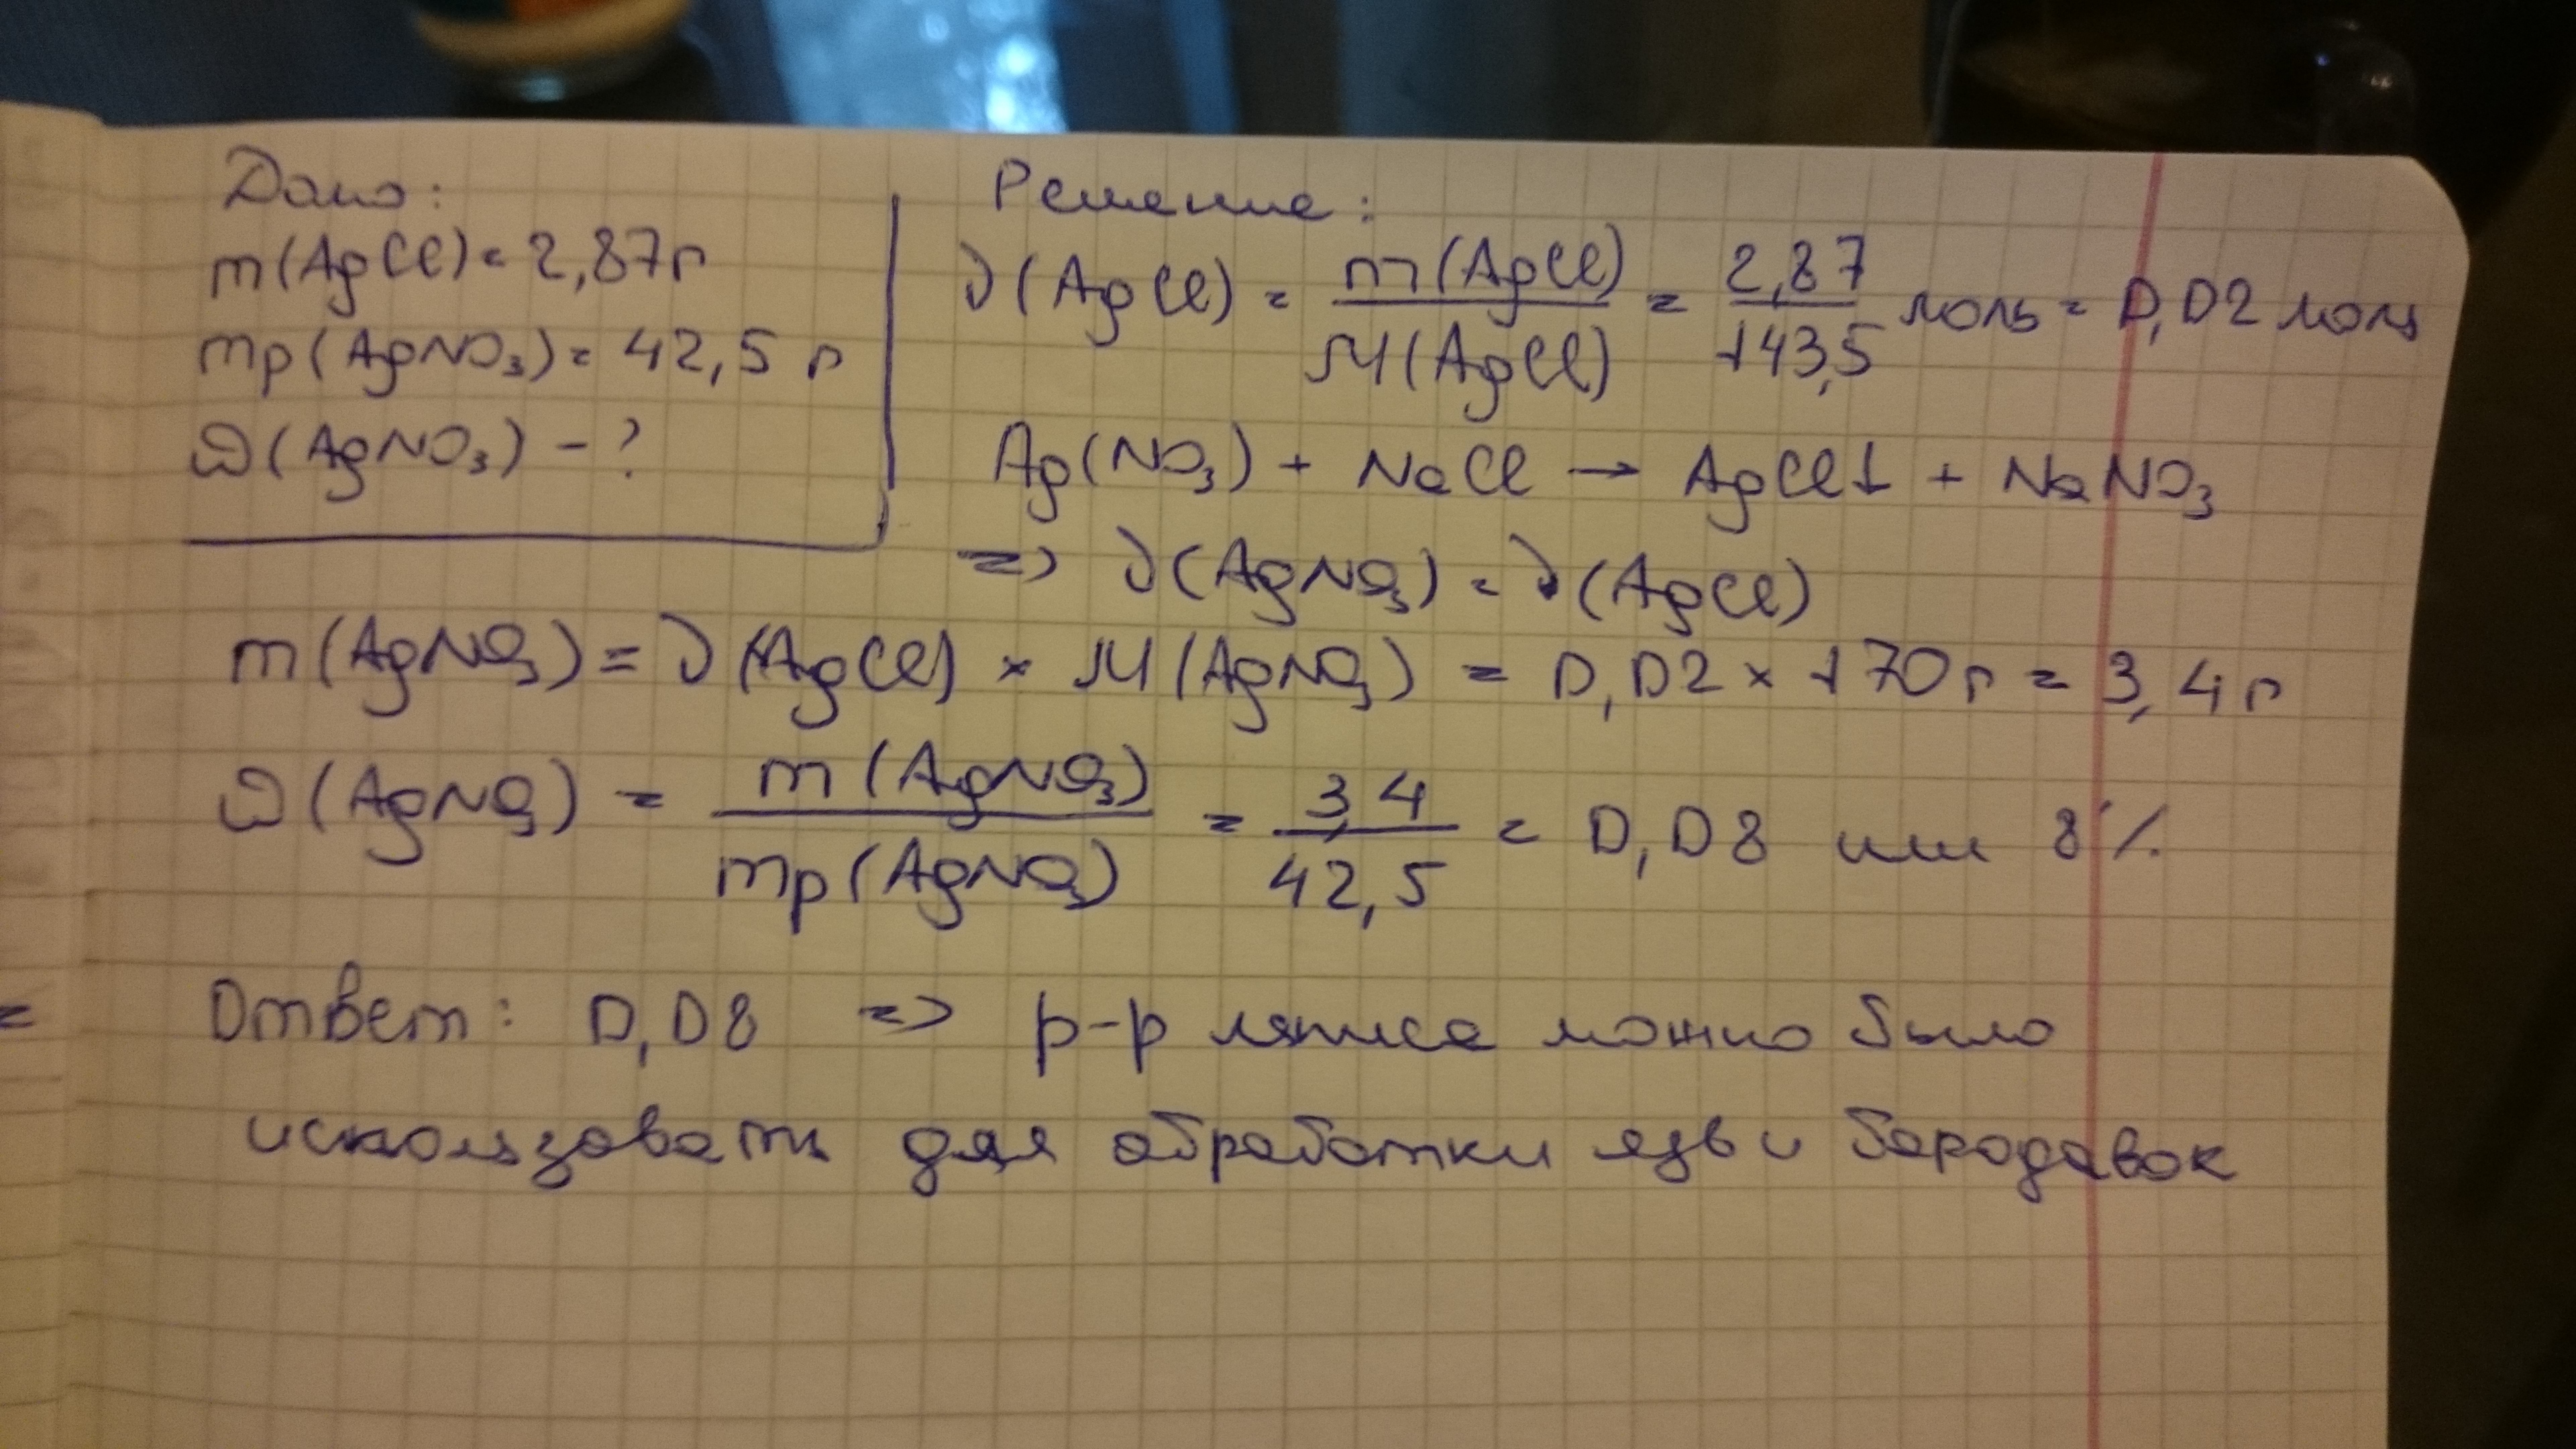 Дано:
m(AgCl) = 2,87 г
mр(AgNO₃) = 42,5 г
ω(AgNO₃) - ?
Решение:
ν(AgCl) = m(AgCl) / M(AgCl) = 2,87 / 143,5 моль = 0,02 моль
Ag(NO₃) + NaCl → AgCl↓ + NaNO₃
=> ν(AgNO₃) = ν(AgCl)
m(AgNO₃) = ν(AgCl) × M(AgNO₃) = 0,02 × 170 г = 3,4 г
ω(AgNO₃) = m(AgNO₃) / mр(AgNO₃) = 3,4 / 42,5 = 0,08 или 8%
=
Ответ: 0,08 => р-р ляписа можно было
использовать для обработки язв и бородавок